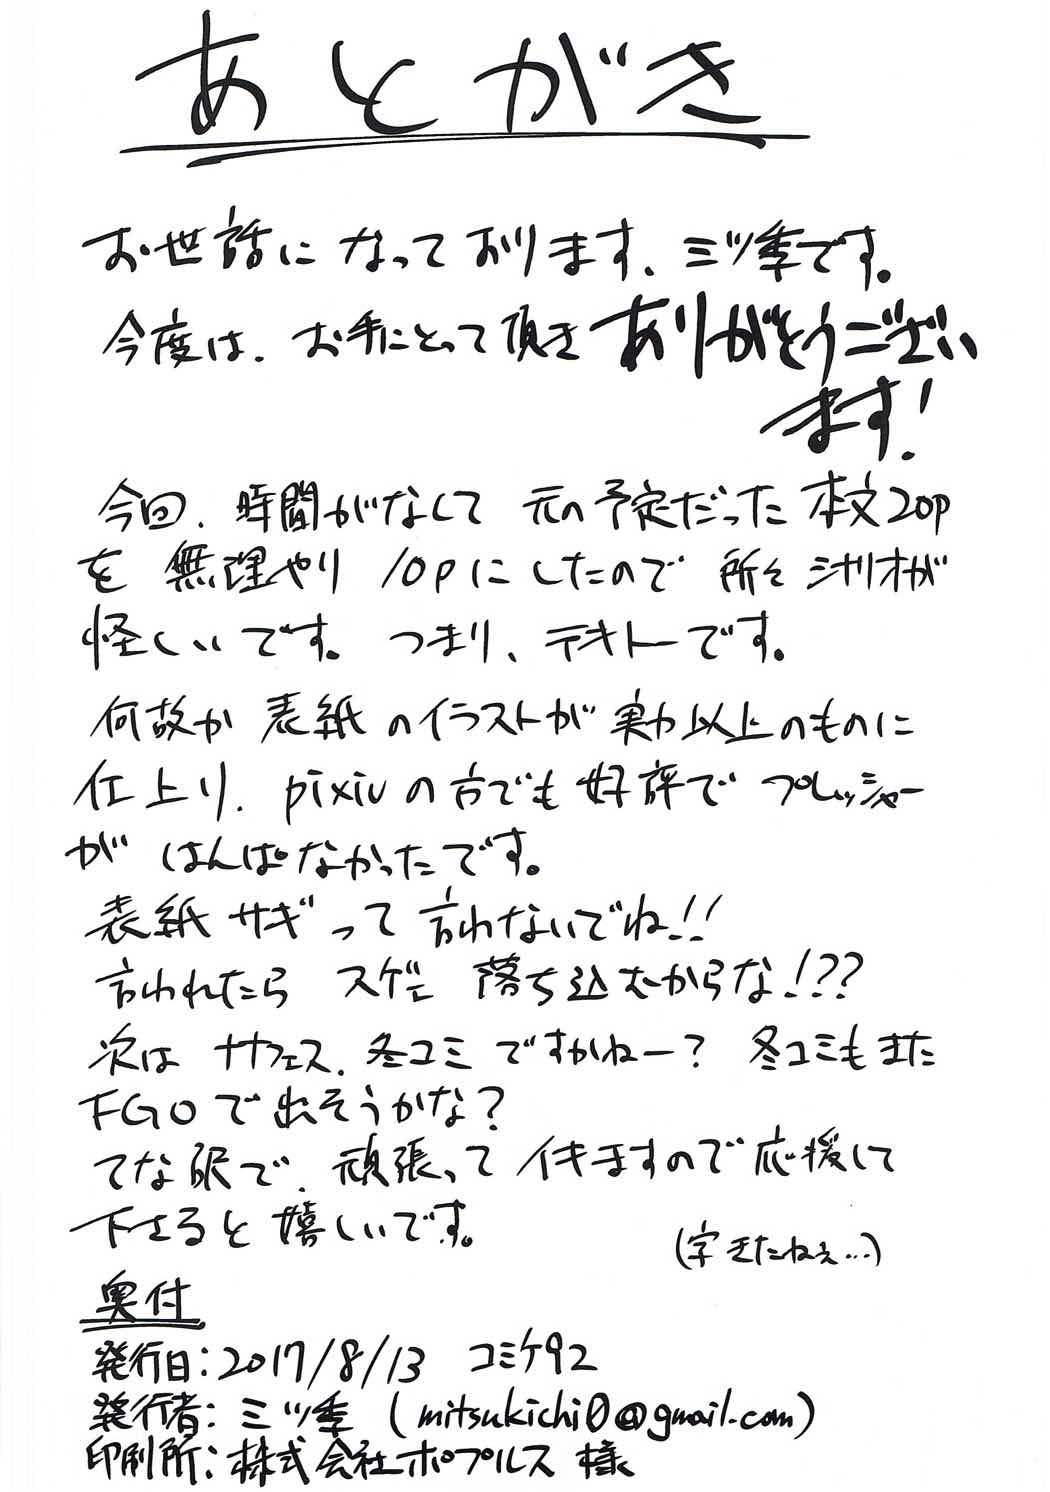 あとがき
お世話になっております、ミツ季です。
今度は、お手にとって頂きありがとうござい
ます!
今回、時間がなくて 元の予定だった 本文20p
を 無理やり 10pにしたので 所々シナリオが
怪しいです。 つまり、テキトーです。
何故か 表紙のイラストが 実力以上のものに
仕上り、pixivの方でも 好評で プレッシャー
が はんぱなかったです。
表紙サギって 言わないでね!!
言われたら スゲェ 落ち込むからな!??
次は サナフェス、冬コミですかねー? 冬コミもまた
FGOで出そうかな?
てな訳で、頑張ってイキますので応援して
下さると嬉しいです。
(字きたねぇ…)
奥付
発行日:2017/8/13 コミケ92
発行者:ミツ季 (mitsukichi0@gmail.com)
印刷所:株式会社ポプルス 様